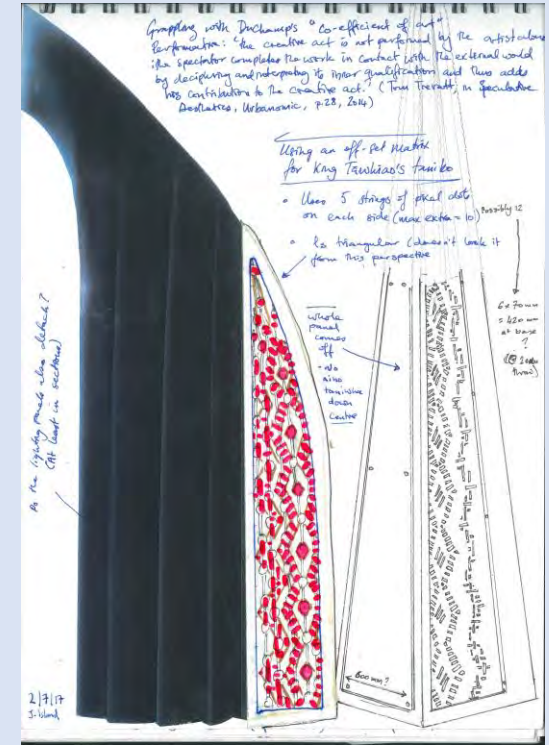 Grappling with Duchamp's "Co-efficient of art"
Performation: 'the creative act is not performed by the artist alone
; the spectator completes the work in contact with the external world
by deciphering and interpreting its inner qualification and thus adds
his contribution to the creative act.' (Tom Trevatt, in Speculative
Aesthetics, Urbanomic, p.28, 2014)
Using an off-set matrix
for King Tawhiao's taniko
• Uses 5 strings of pixel dots
on each side (max extra = 10)
Possibly 12
• Is triangular (doesn't look it
from this perspective
6 x 70mm
= 420mm
at base
?
whole
panel
comes
off
down
centre
Do the lighting panels also detach?
(At least in sections)
600 mm?
2/7/17